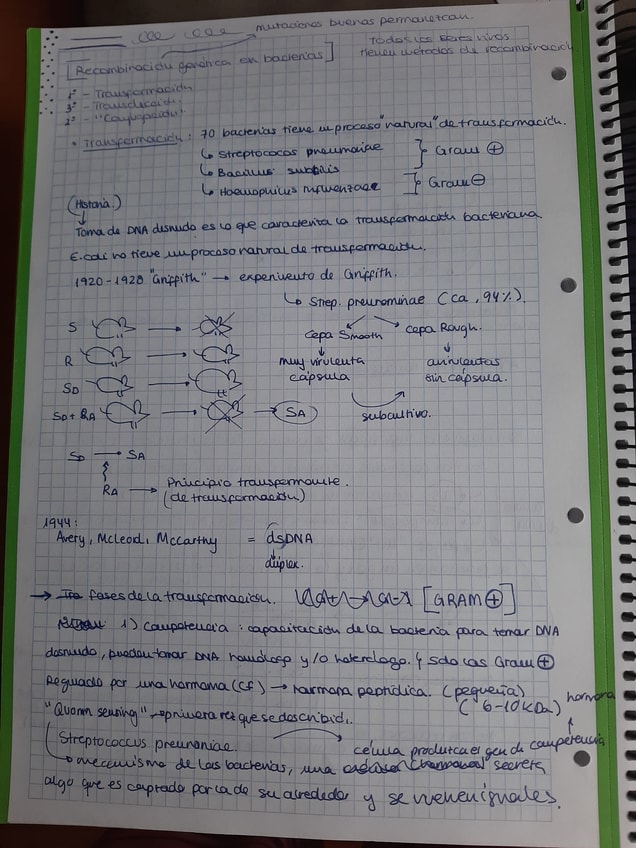 mutaciones buenas permanezcan.
[Recombinación genética en bacterias]
Todos los seres vivos
tienen métodos de recombinación
1º - Transformación
3º - Transducción.
2º - "Conjugación"
• Transformación: 70 bacterias tiene un proceso "natural" de transformación.
↳ Streptococos pneumoniae
↳ Bacillus subtilis
} Gram ⊕
↳ Haemophilus influenzae } Gram ⊖
(Historia.)
Toma de DNA disnudo es lo que caracteriza la transformación bacteriana
E.coli no tiene un proceso natural de transformación.
1920-1928 "Griffith" → experimento de Griffith.
↳ Strep. pneunominae (ca, 94%).
cepa Smooth
cepa Rough.
muy virulenta
cápsula
avirulentas
sin cápsula.
subcultivo.
S
R
SD
SD + RA → SA
SD → SA
RA → Principio transformante.
(de transformación)
1944:
Avery, McLeod, Mccarthy = dsDNA
duplex.
→ fases de la transformación. [GRAM ⊕]
1) Competencia: capacitación de la bacteria para tomar DNA
desnudo, pueden tomar DNA homólogo y/o heterologo. solo las Gram ⊕
Regulado por una hormona (CF) → hormona peptídica. (pequeña)
(6-10 KDa) hormona
"Quorm sensing" → primera vez que se describió.
Streptococcus pneunoniae.
célula produzca el gen de competencia
↳ mecanismo de las bacterias, una secreta
algo que es captado por la de su alrededor y se vuelven iguales.